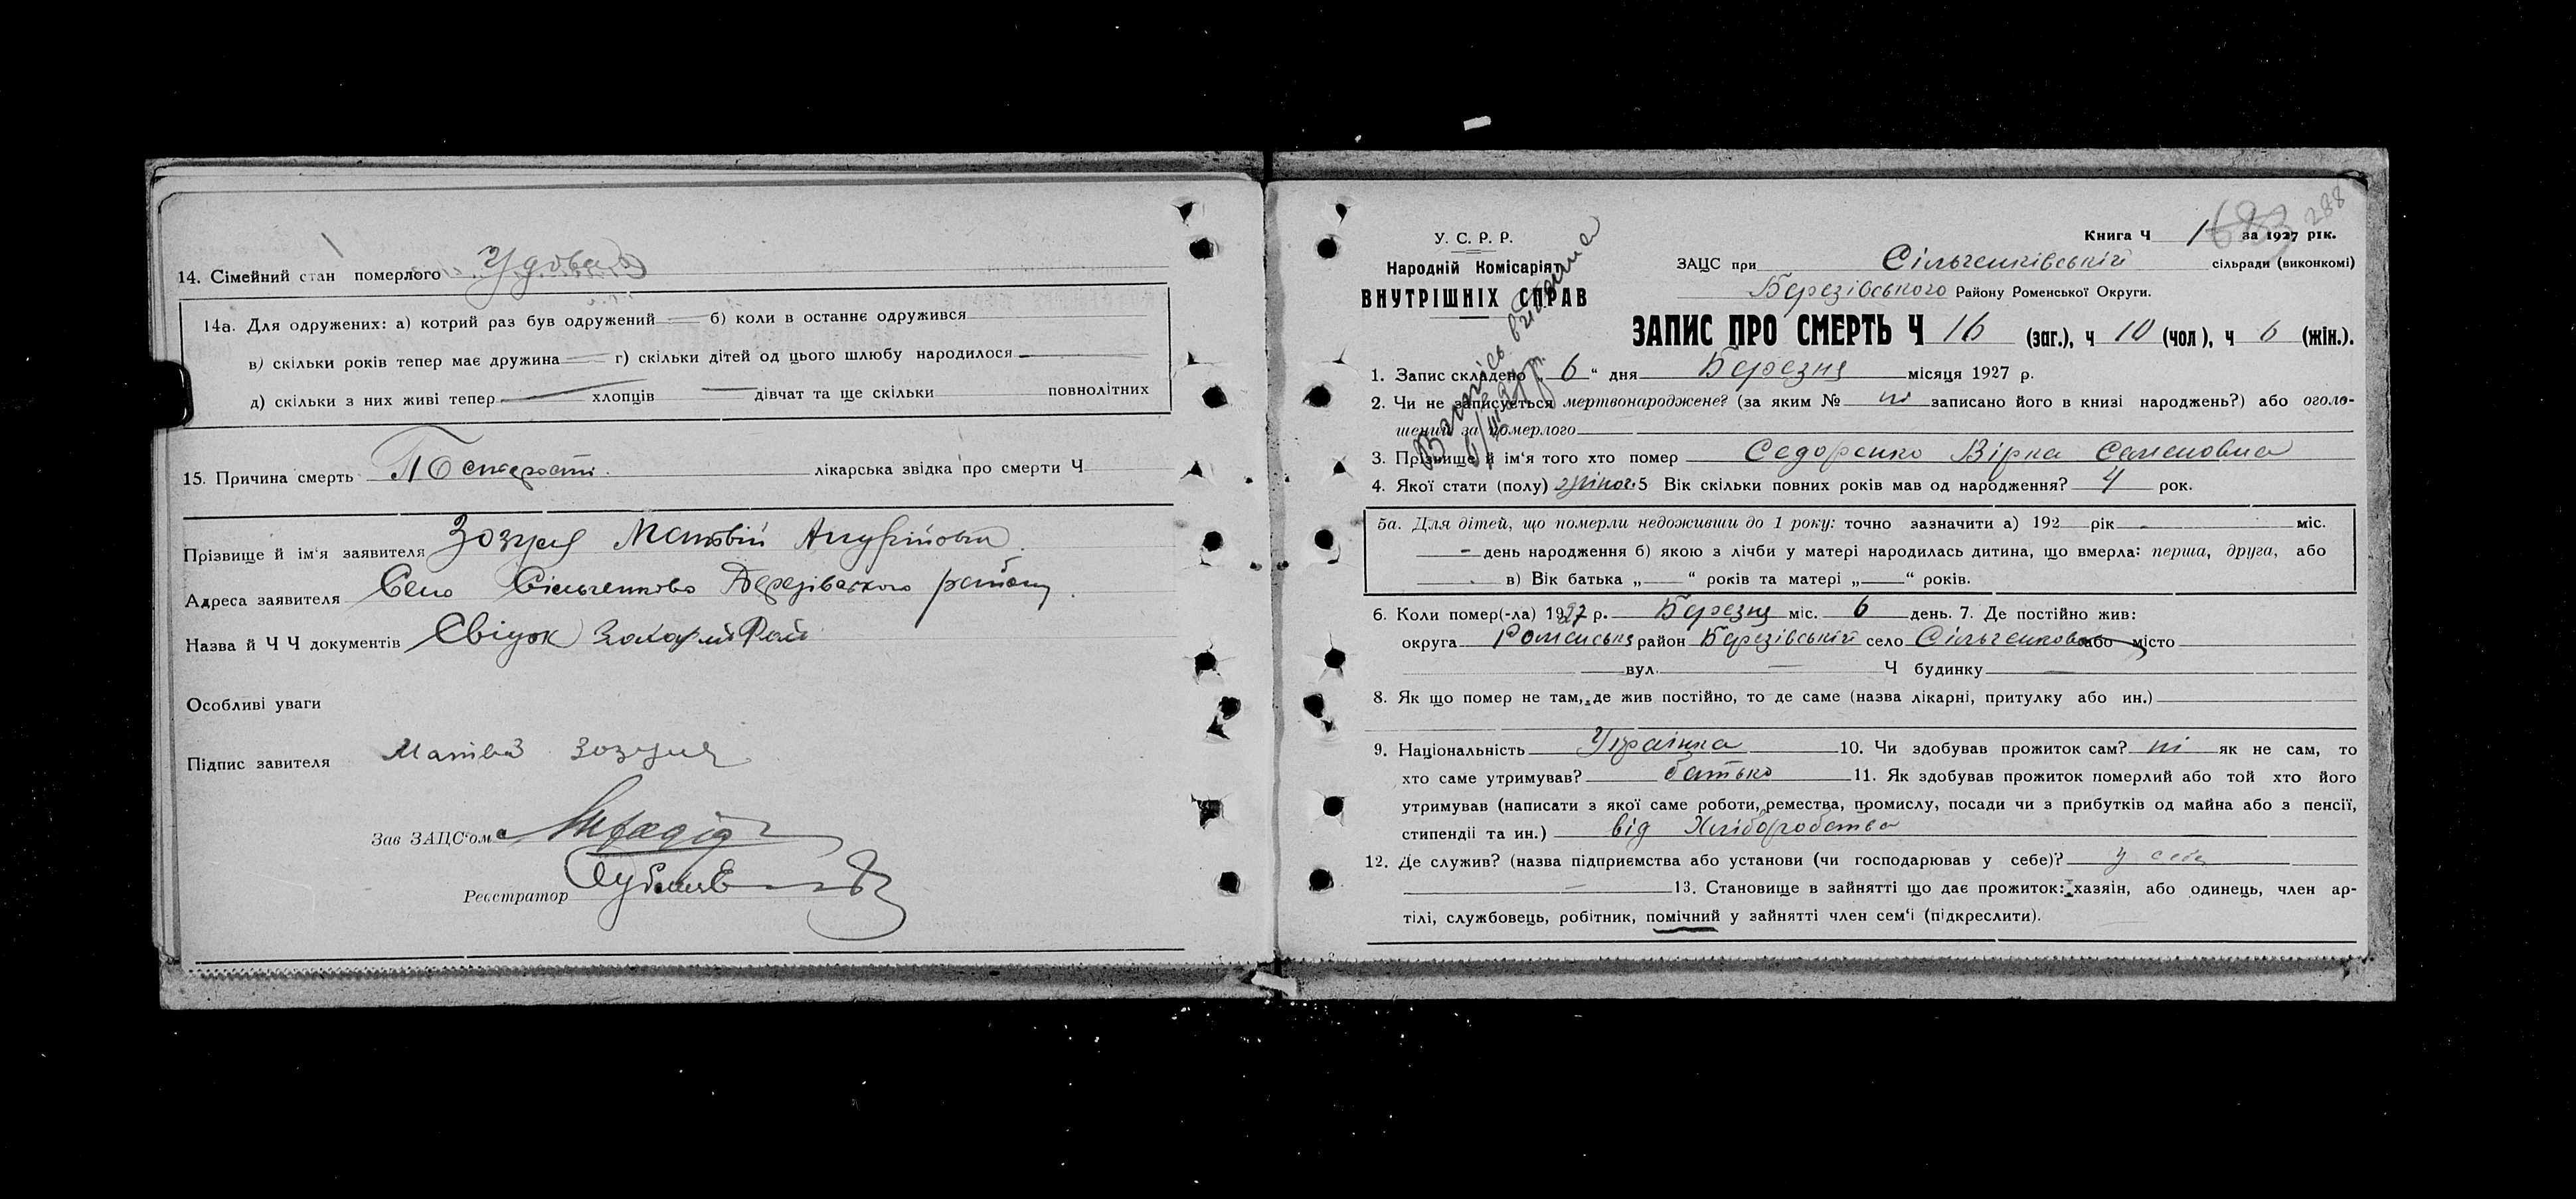 14. Сімейний стан померлого Удова
14а. Для одружених: а) котрий раз був одружений б) коли в останнє одружився
в) скільки років тепер має дружина г) скільки дітей од цього шлюбу народилося
д) скільки з них живі тепер хлопців дівчат та ще скільки повнолітних
15. Причина смерть По старості лікарська звідка про смерти Ч
Прізвище й ім'я заявителя Зозуля Матвій
Адреса заявителя Село Сільченково Березівського району
Назва й Ч Ч документів Свідок
Особливі уваги
Підпис завителя Матвій Зозуля
Зав ЗАЦС'ом
Реєстратор
288
У. С. Р. Р.
Народній Комісаріят
ВНУТРІШНІХ СПРАВ
Книга Ч 1 за 1927 рік.
ЗАЦС при Сільченківській сільради (виконкомі)
Березівського Району Роменської Округи.
ЗАПИС ПРО СМЕРТЬ Ч 16 (заг.), ч 10 (чол), ч 6 (жін.).
1. Запис складено „6“ дня Березня місяця 1927 р.
2. Чи не записується мертвонароджене? (за яким № ні записано його в книзі народжень?) або оголо-
шений за померлого
3. Прізвище й ім'я того хто помер Седоренко Вірка Семеновна
4. Якої статі (полу) жіноч. 5 Вік скільки повних років мав од народження? 4 рок.
5а. Для дітей, що померли недоживши до 1 року: точно зазначити а) 192 рік міс.
день народження б) якою з лічби у матері народилась дитина, що вмерла: перша, друга, або
в) Вік батька „ “ років та матері „ “ років.
6. Коли помер(-ла) 1927 р. Березня міс. 6 день. 7. Де постійно жив:
округа Роменська район Березівський село Сільченково або місто
вул. Ч будинку
8. Як що помер не там, де жив постійно, то де саме (назва лікарні, притулку або ин.)
9. Національність Українка 10. Чи здобував прожиток сам? ні як не сам, то
хто саме утримував? батько 11. Як здобував прожиток померлий або той хто його
утримував (написати з якої саме роботи, ремества, промислу, посади чи з прибутків од майна або з пенсії,
стипендії та ин.) від Хліборобства
12. Де служив? (назва підприємства або установи (чи господарював у себе)? у себе
13. Становище в зайнятті що дає прожиток: хазяін, або одинець, член ар-
тілі, службовець, робітник, помічний у зайнятті член сем'ї (підкреслити).